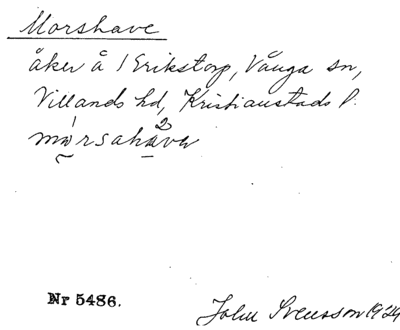 Morshave
åker å 1 Erikstorp, Vånga sn,
Villands hd, Kristianstads l.
mårsahava
Nr 5486.
John Svensson 1924